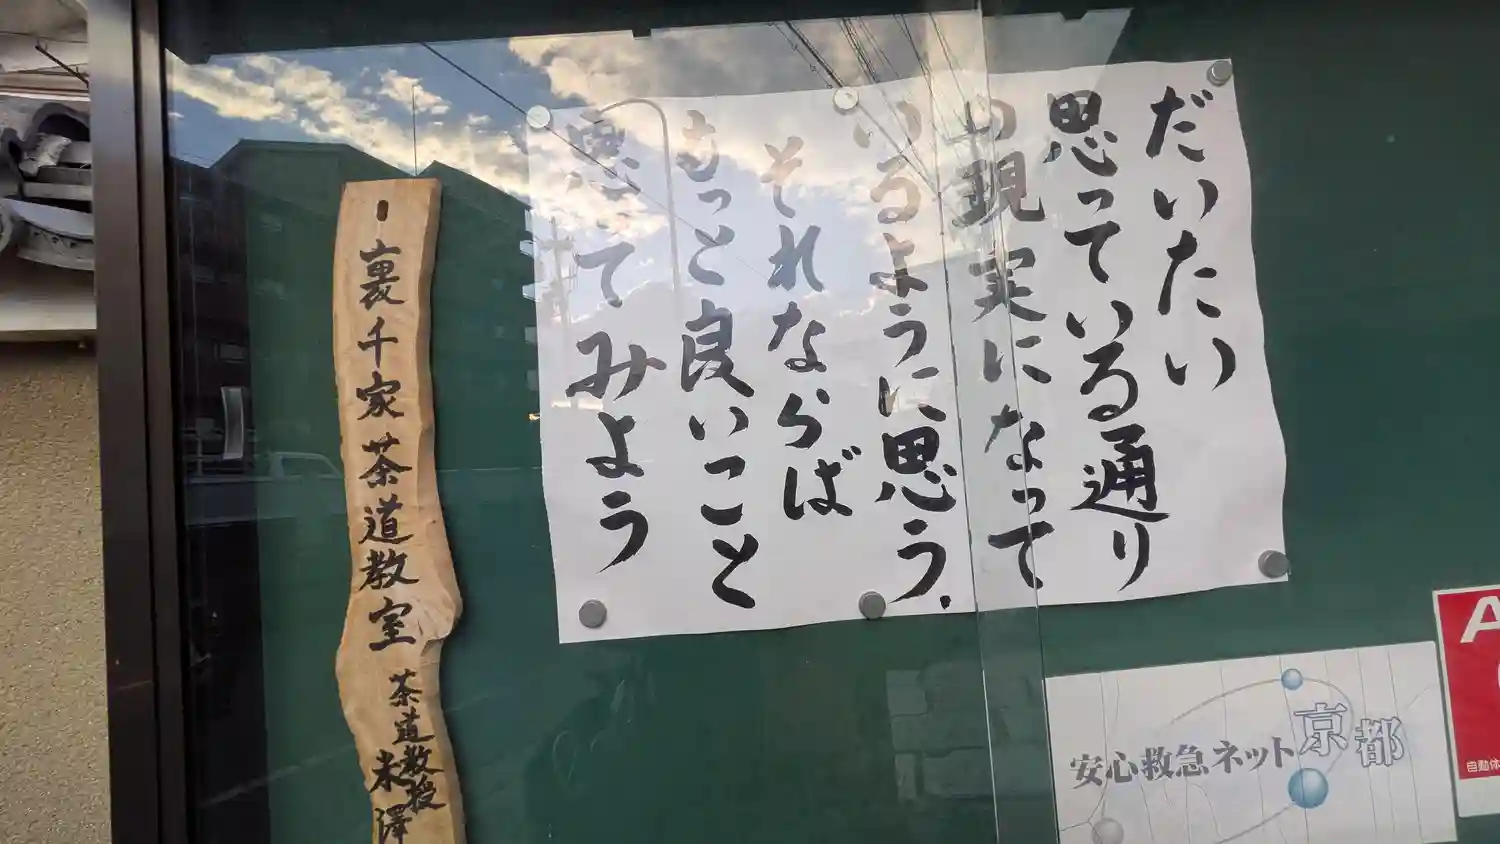 だいたい
思っている通り
の現実になって
いるように思う.
それならば
もっと良いこと
思ってみよう
裏千家茶道教室
茶道教授
米澤
安心救急ネット京都
A
自動体